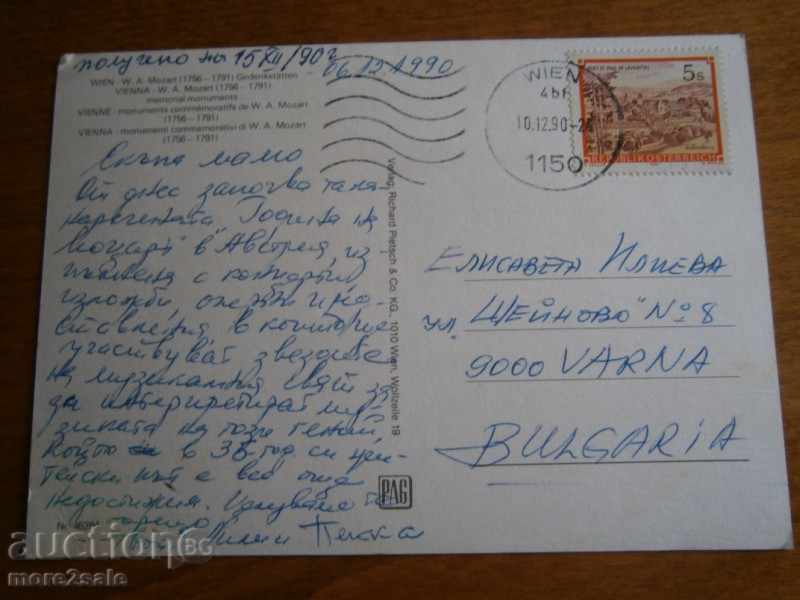 получено на 15 XII/90 г
06.12.1990
WIEN - W. A. Mozart (1756 – 1791) Gedenkstätten
VIENNA - W. A. Mozart (1756 – 1791)
memorial monuments
VIENNE - monuments commémoratifs de W. A. Mozart
(1756 – 1791)
VIENNA - monumenti commemorativi di W. A. Mozart
(1756 – 1791)
Скъпа мамо
От днес започва така
наречената "Година на
Моцарт" в Австрия, из-
пълнена с концерти,
изложби, опери и
в които
участвуват звездите
на музикалния свят за
да интерпретират му-
зиката на този гений,
който в 35 год. си
път е все още
недостижим. Целуваме те
горещо
Пепка
Verlag: Richard Pietsch & Co. KG., 1010 Wien, Wollzeile 19
PAG
WIEN
10.12.90
1150
5s
REPUBLIK ÖSTERREICH
ЕЛИСАВЕТА ИЛИЕВА
ул. "ШЕЙНОВО" № 8
9000 VARNA
BULGARIA
auction BG
more2sale